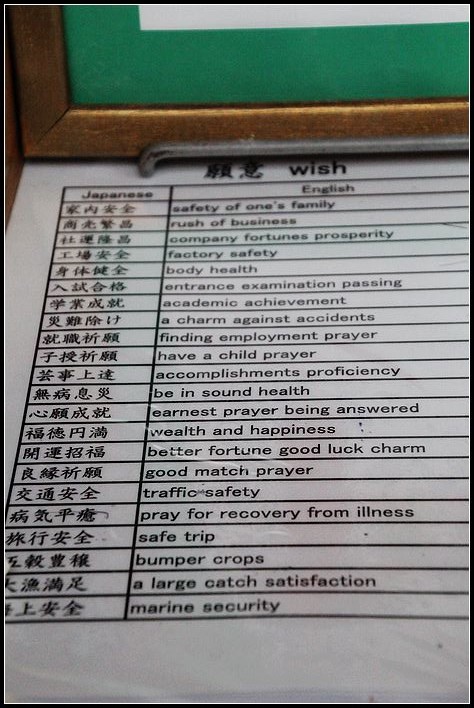 願意 wish
Japanese English
家内安全 safety of one's family
商売繁昌 rush of business
社運隆昌 company fortunes prosperity
工場安全 factory safety
身体健全 body health
入試合格 entrance examination passing
学業成就 academic achievement
災難除け a charm against accidents
就職祈願 finding employment prayer
子授祈願 have a child prayer
芸事上達 accomplishments proficiency
無病息災 be in sound health
心願成就 earnest prayer being answered
福徳円満 wealth and happiness
開運招福 better fortune good luck charm
良縁祈願 good match prayer
交通安全 traffic safety
病気平癒 pray for recovery from illness
旅行安全 safe trip
五穀豊穣 bumper crops
大漁満足 a large catch satisfaction
海上安全 marine security